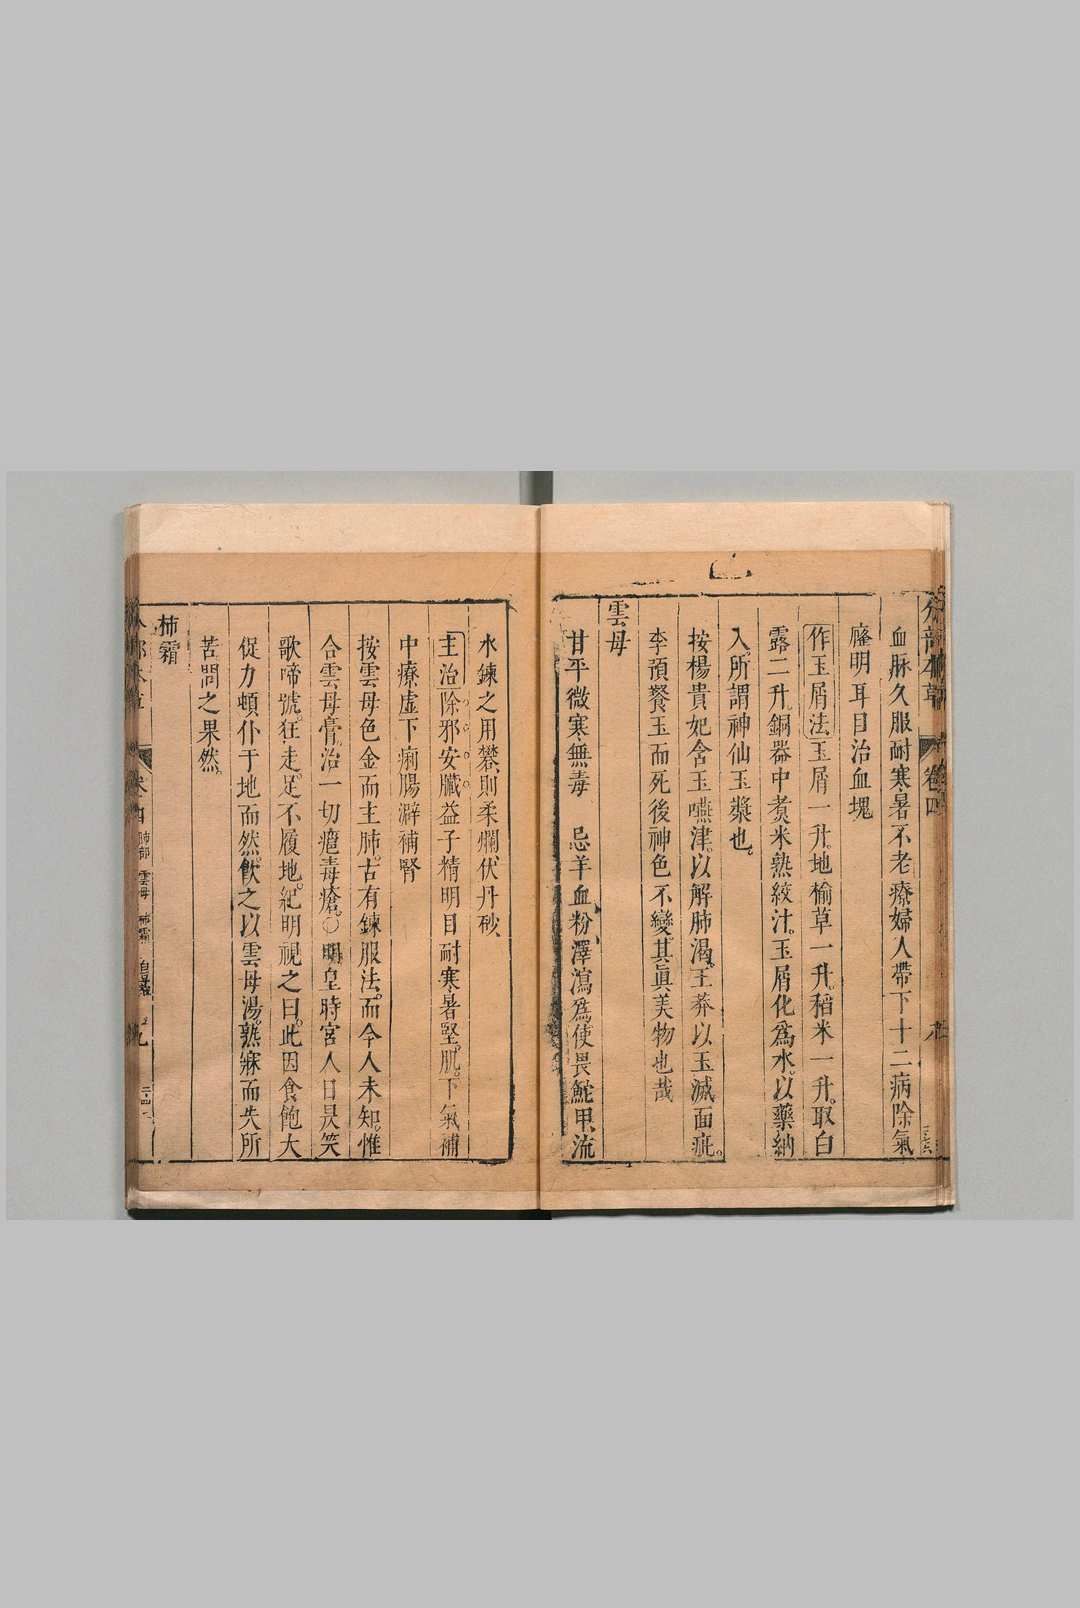 分部本草 卷四
血脉久服耐寒暑不老療婦人帶下十二病除氣
癃明耳目治血塊
作玉屑法玉屑一升。地榆草一升。稻米一升。取白
露二升。銅器中煮米熟絞汁。玉屑化爲水。以藥納
入。所謂神仙玉漿也。
按楊貴妃含玉嚥津。以解肺渴。王莽以玉滅面疵。
李預餐玉而死後神色不變。其眞美物也哉
雲母
甘平微寒無毒 忌羊血粉。澤瀉爲使畏鮀甲。流
水鍊之用礬則柔爛伏丹砂、
主治除邪安臟益子精明目耐寒暑堅。肌。下氣補
中療虛下痢腸澼補腎
按雲母色金而主肺。古有鍊服法。而今人未知。惟
合雲母膏。治一切癰毒瘡。○明皇時宮人日晃笑
歌啼號。狂走。足不履地。紀明視之曰。此因食飽大
促力頓仆于地而然。飲之以雲母湯。熟寐而失所
苦。問之果然。
柿霜
卷四 肺部 雲母 柿霜